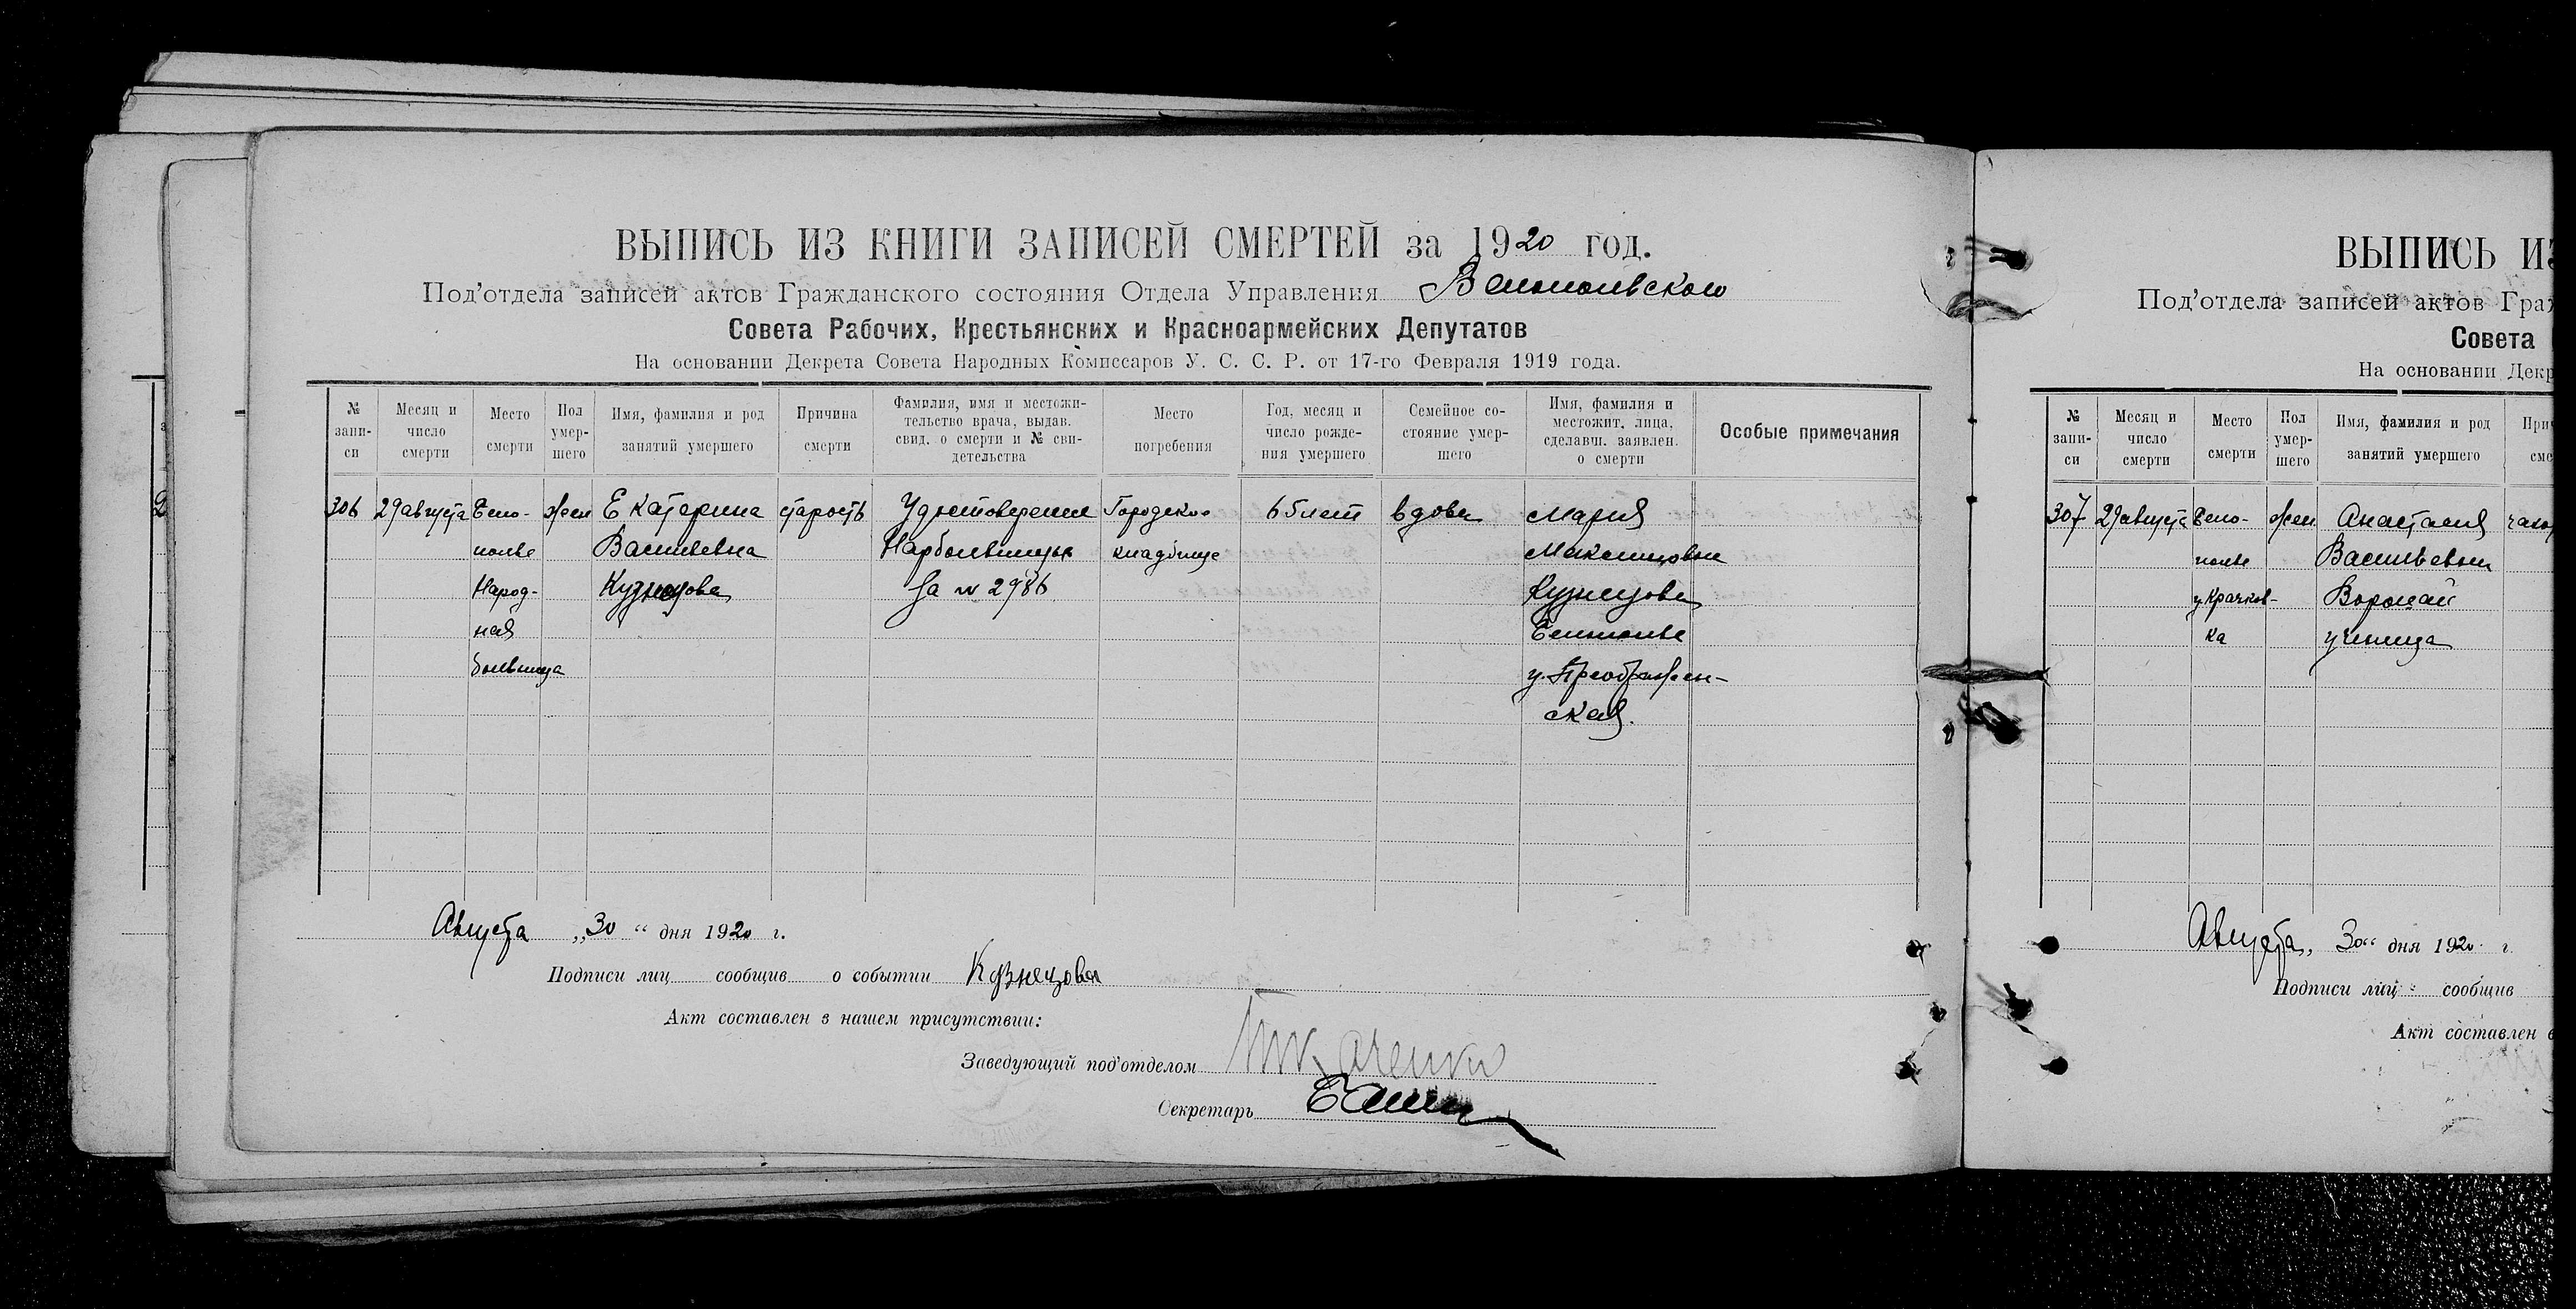 ВЫПИСЬ ИЗ КНИГИ ЗАПИСЕЙ СМЕРТЕЙ за 1920 год.
Под'отдела записей актов Гражданского состояния Отдела Управления Белопольского
Совета Рабочих, Крестьянских и Красноармейских Депутатов
На основании Декрета Совета Народных Комиссаров У. С. С. Р. от 17-го Февраля 1919 года.
№ запи- си
Месяц и число смерти
Место смерти
Пол умер- шего
Имя, фамилия и род занятий умершего
Причина смерти
Фамилия, имя и местожи- тельство врача, выдав. свид. о смерти и № сви- детельства
Место погребения
Год, месяц и число рожде- ния умершего
Семейное со- стояние умер- шего
Имя, фамилия и местожит. лица, сделавш. заявлен. о смерти
Особые примечания
306
29 августа
Бело-
полье
Народ-
ная
больница
жен
Екатерина
Васильевна
Кузнецова
старость
Удостоверение
Нарбольницы
за № 2986
Городское
кладбище
65 лет
вдова
Мария
Максимовна
Кузнецова
Белополье
у. Преображен-
ская.
Августа „30“ дня 1920 г.
Подписи лиц сообщив о событии Кузнецова
Акт составлен в нашем присутствии:
Заведующий под'отделом Ткаченко
Секретарь
ВЫПИСЬ ИЗ
Под'отдела записей актов Граж
Совета
На основании Декр
№ запи- си
Месяц и число смерти
Место смерти
Пол умер- шего
Имя, фамилия и род занятий умершего
При
сме
307
29 августа
Бело-
полье
у Крачков-
ка
жен
Анастасия
Васильевна
Ворожай
ученица
Августа „30“ дня 1920 г.
Подписи лиц сообщив
Акт составлен в